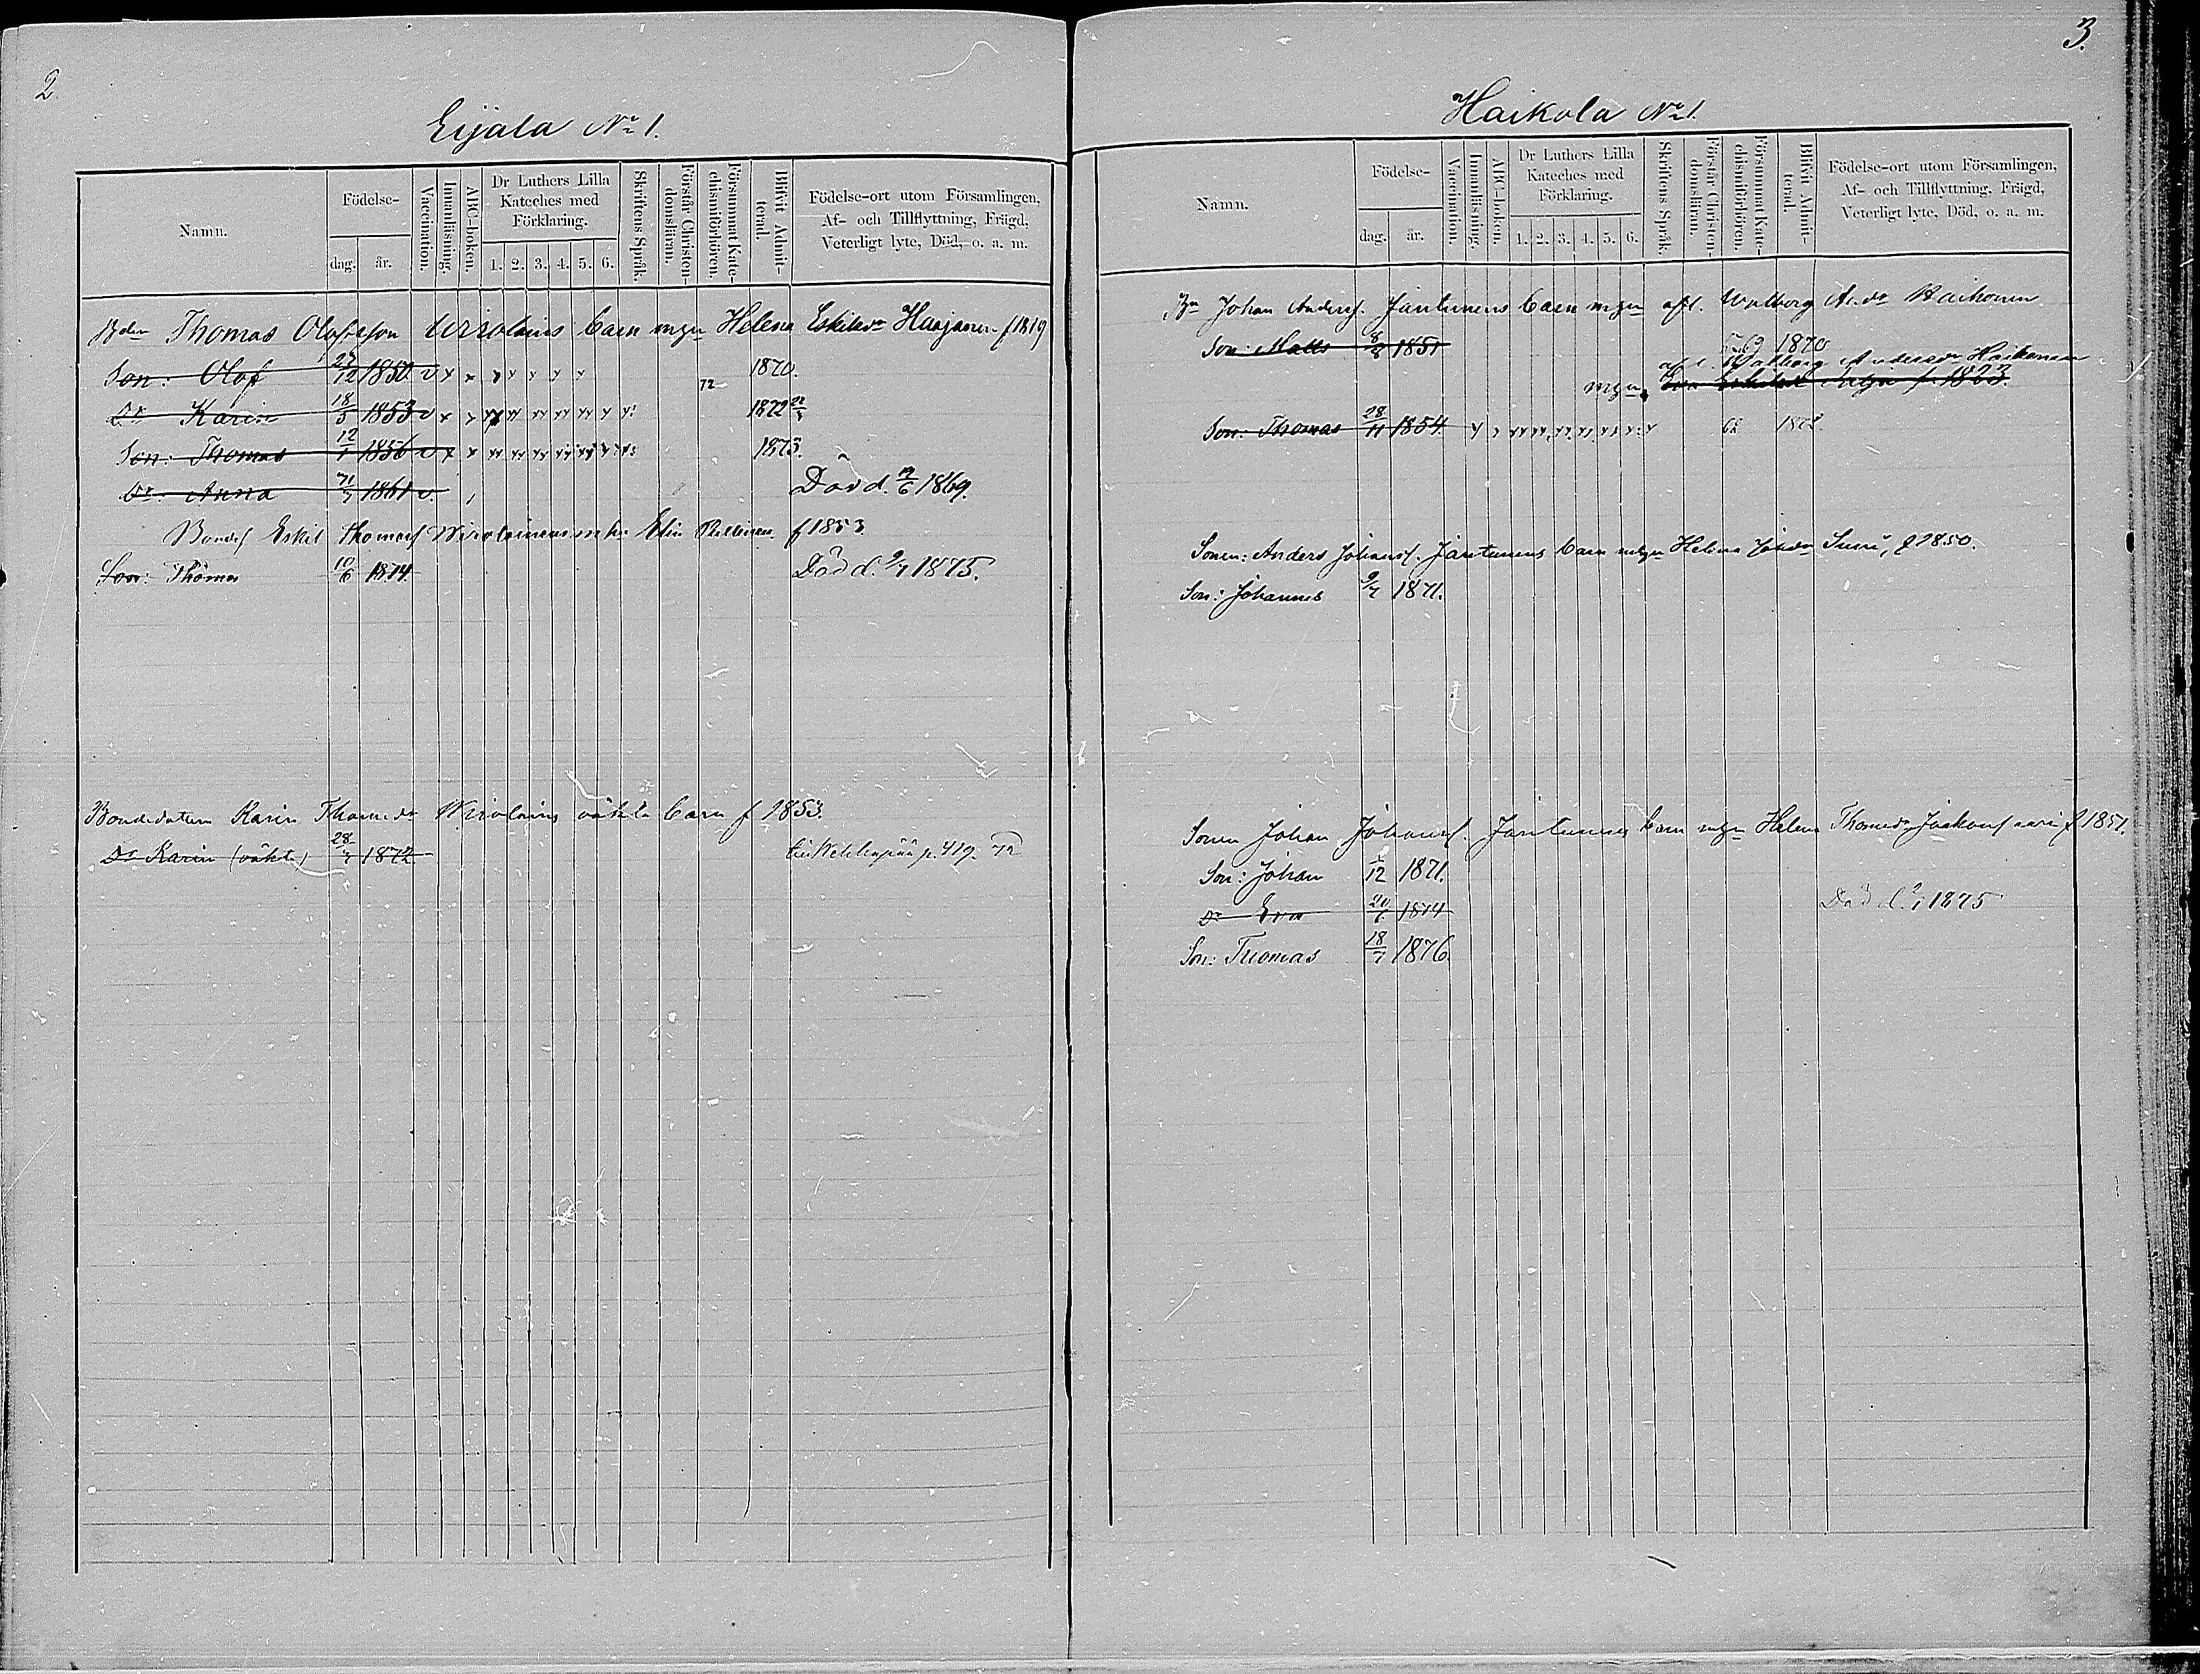 2
Eijala No 1.
Namn.
Födelse-
dag. år.
Vaccination.
Innanläsning.
ABC-boken.
Dr Luthers Lilla Kateches med Förklaring.
1. 2. 3. 4. 5. 6.
Skriftens Språk.
Förstår Christendomsläran.
Försummat Katechismiförhören.
Blifvit Admitterad.
Födelse-ort utom Församlingen, Af- och Tillflyttning, Frägd, Veterligt lyte, Död, o. a. m.
Bdn Thomas Olofsson Wirolains barn mgn Helena Eskilsdr Haajanen f 1819
Son: Olof 23/12 1850 v x x x x x x x 1870.
Dr Karin 18/5 1853 v x x 72 1872
Son: Thomas 12/1 1856 v x x 1873.
Dr. Anna 1861 v. Död d. 1869.
Bondes Eskil Thomass Wirolainens Elin f 1853
Son: Thomas 10/6 1874. Död d. 9/7 1875.
Bondedottern Karin Thomasdr Wirolains oäkta barn f 1853.
Dr Karin (oäkta) 28/7 1872 p. 419. 72
3.
Haikola No 1.
Namn.
Födelse-
dag. år.
Vaccination.
Innanläsning.
ABC-boken.
Dr Luthers Lilla Kateches med Förklaring.
1. 2. 3. 4. 5. 6.
Skriftens Språk.
Förstår Christendomsläran.
Försummat Katechismiförhören.
Blifvit Admitterad.
Födelse-ort utom Församlingen, Af- och Tillflyttning, Frägd, Veterligt lyte, Död, o. a. m.
Bn Johan Anderss. Jantunens barn mgn afl. Walborg Andr Haikonen
Son: Matts 8/8 1851 69 1870
afl. Walborg Andersdr Haikonen
mgn f. 1823.
Son: Thomas 28/11 1854 1872.
Sonen: Anders Johanss. Jantunens barn mgn Helena Johdr Suni, f 1850.
Son: Johannes 9/7 1871.
Sonen Johan Johanss. Jantunens barn mgn Helena Thomasdr f 1851.
Son: Johan 1/12 1871.
Dr Eva 20/6 1874 Död d. 1875
Son: Thomas 18/7 1876.